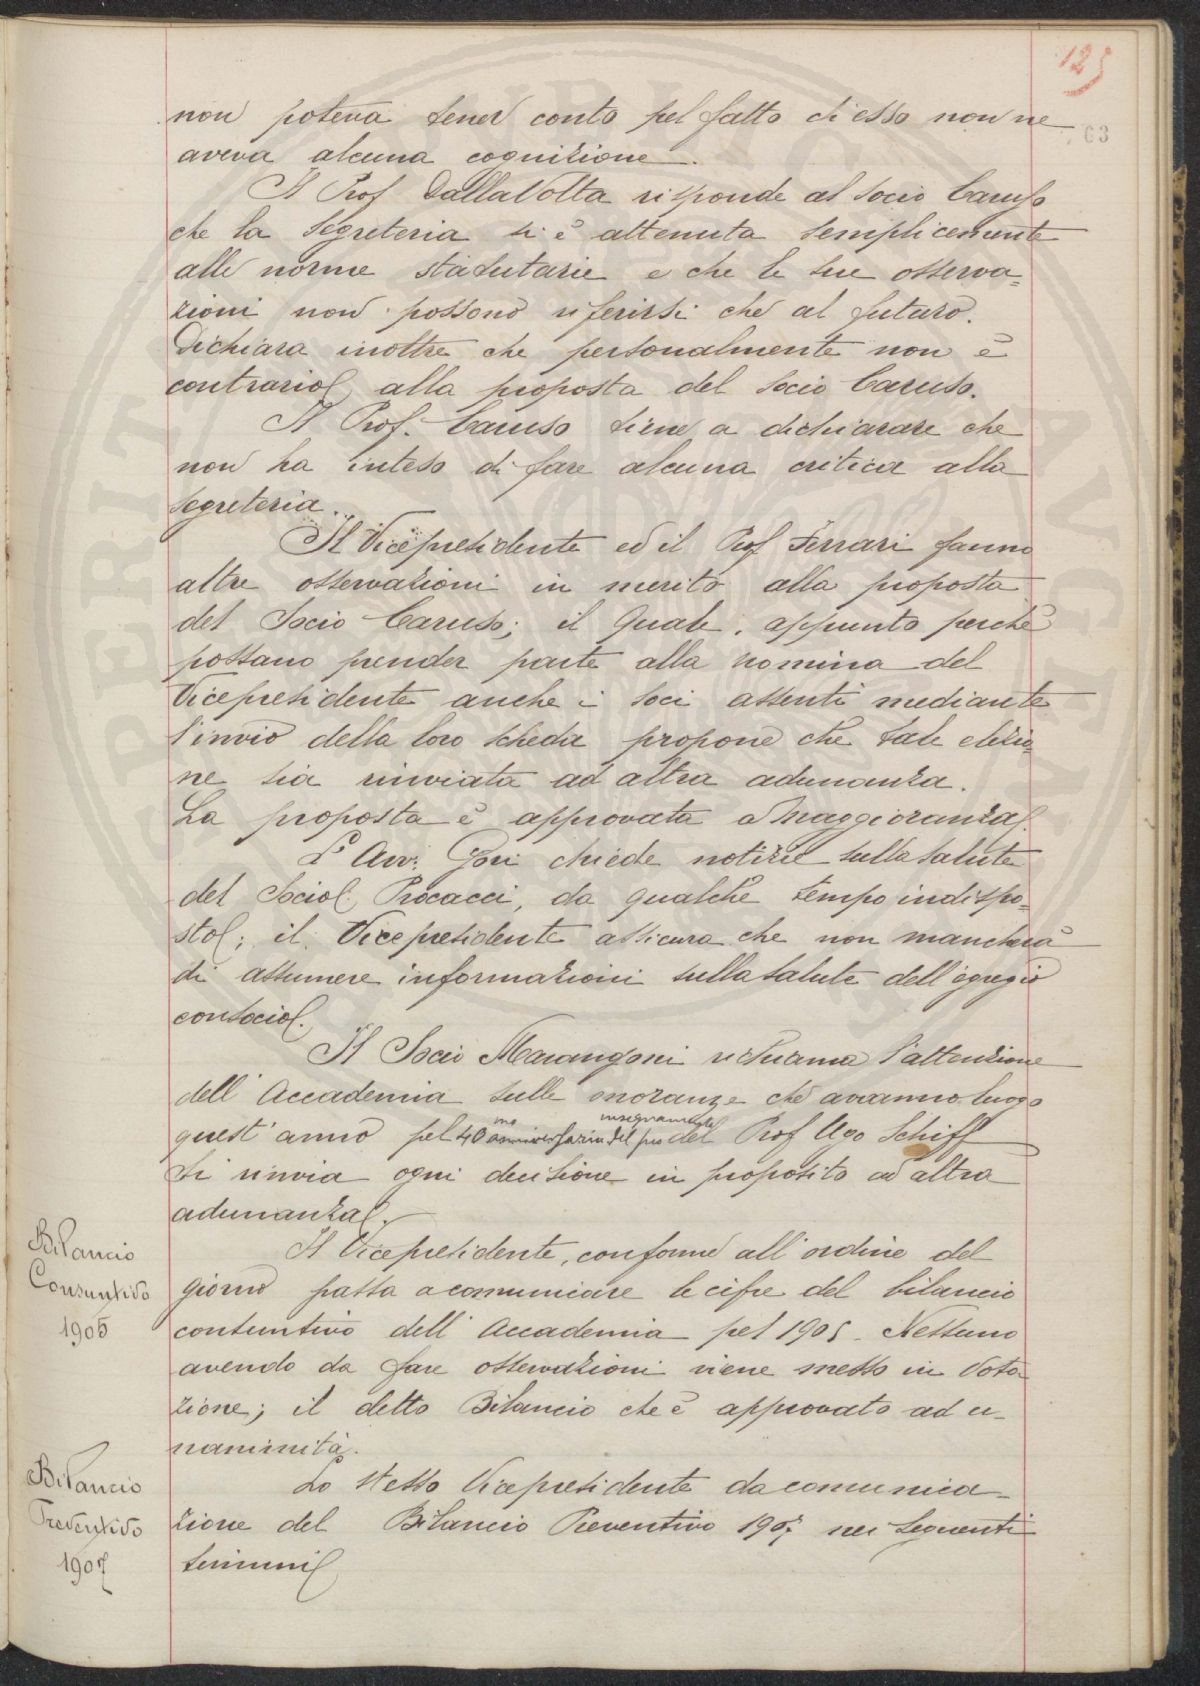 125
63
non poteva tener conto pel fatto ch'esso non ne
aveva alcuna cognizione.
Il Prof DallaVolta risponde al Socio Caruso
che la Segreteria si è attenuta semplicemente
alle norme statutarie e che le sue osserva=
zioni non possono riferirsi che al futuro.
Dichiara inoltre che personalmente non è
contrario alla proposta del Socio Caruso.
Il Prof. Caruso tiene a dichiarare che
non ha inteso di fare alcuna critica alla
Segreteria.
Il Vicepresidente ed il Prof Ferrari fanno
altre osservazioni in merito alla proposta
del Socio Caruso; il quale, appunto perchè
possano prender parte alla nomina del
Vicepresidente anche i Soci assenti mediante
l'invio della loro scheda propone che tale elezio=
ne sia rinviata ad altra adunanza.
La proposta è approvata a Maggioranza.
L'Avv. Gori chiede notizie sulla salute
del Socio Procacci, da qualche tempo indispo=
sto; il Vicepresidente assicura che non mancherà
di assumere informazioni sulla salute dell'egregio
consocio.
Il Socio Marangoni richiama l'attenzione
dell'Accademia sulle onoranze che avranno luogo
quest'anno pel 40mo anniversario del insegnamento del Prof Ugo Schiff
Si rinvia ogni decisione in proposito ad altra
adunanza.
Bilancio
Consuntivo
1905
Il Vicepresidente, conforme all'ordine del
giorno passa a comunicare le cifre del bilancio
consuntivo dell'Accademia pel 1905. Nessuno
avendo da fare osservazioni viene messo in Vota
zione; il detto Bilancio che è approvato ad u-
nanimità.
Bilancio
Preventivo
1907
Lo stesso Vicepresidente da comunica-
zione del Bilancio Preventivo 1907 nei seguenti
termini